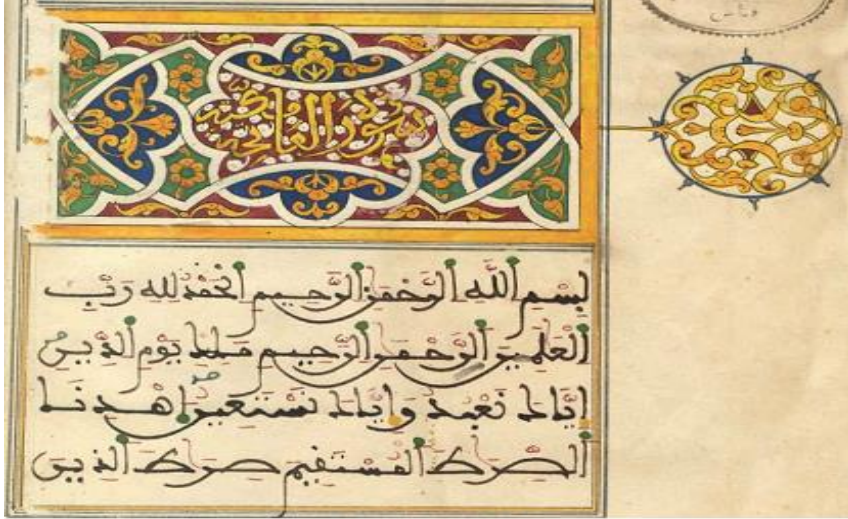 سورة الفاتحة
بِسْمِ اِللَّهِ اِلرَّحْمَٰنِ اِلرَّحِيمِ اِلْحَمْدُ لِلهِ رَبِّ
اِلْعَٰلَمِينَ اَلرَّحْمَٰنِ اِلرَّحِيمِ مَلِكِ يَوْمِ اِلدِّينِ
إِيَّاكَ نَعْبُدُ وَإِيَّاكَ نَسْتَعِينُ اُهْدِنَا
اَلصِّرَٰطَ اَلْمُسْتَقِيمَ صِرَٰطَ اَلذِينَ